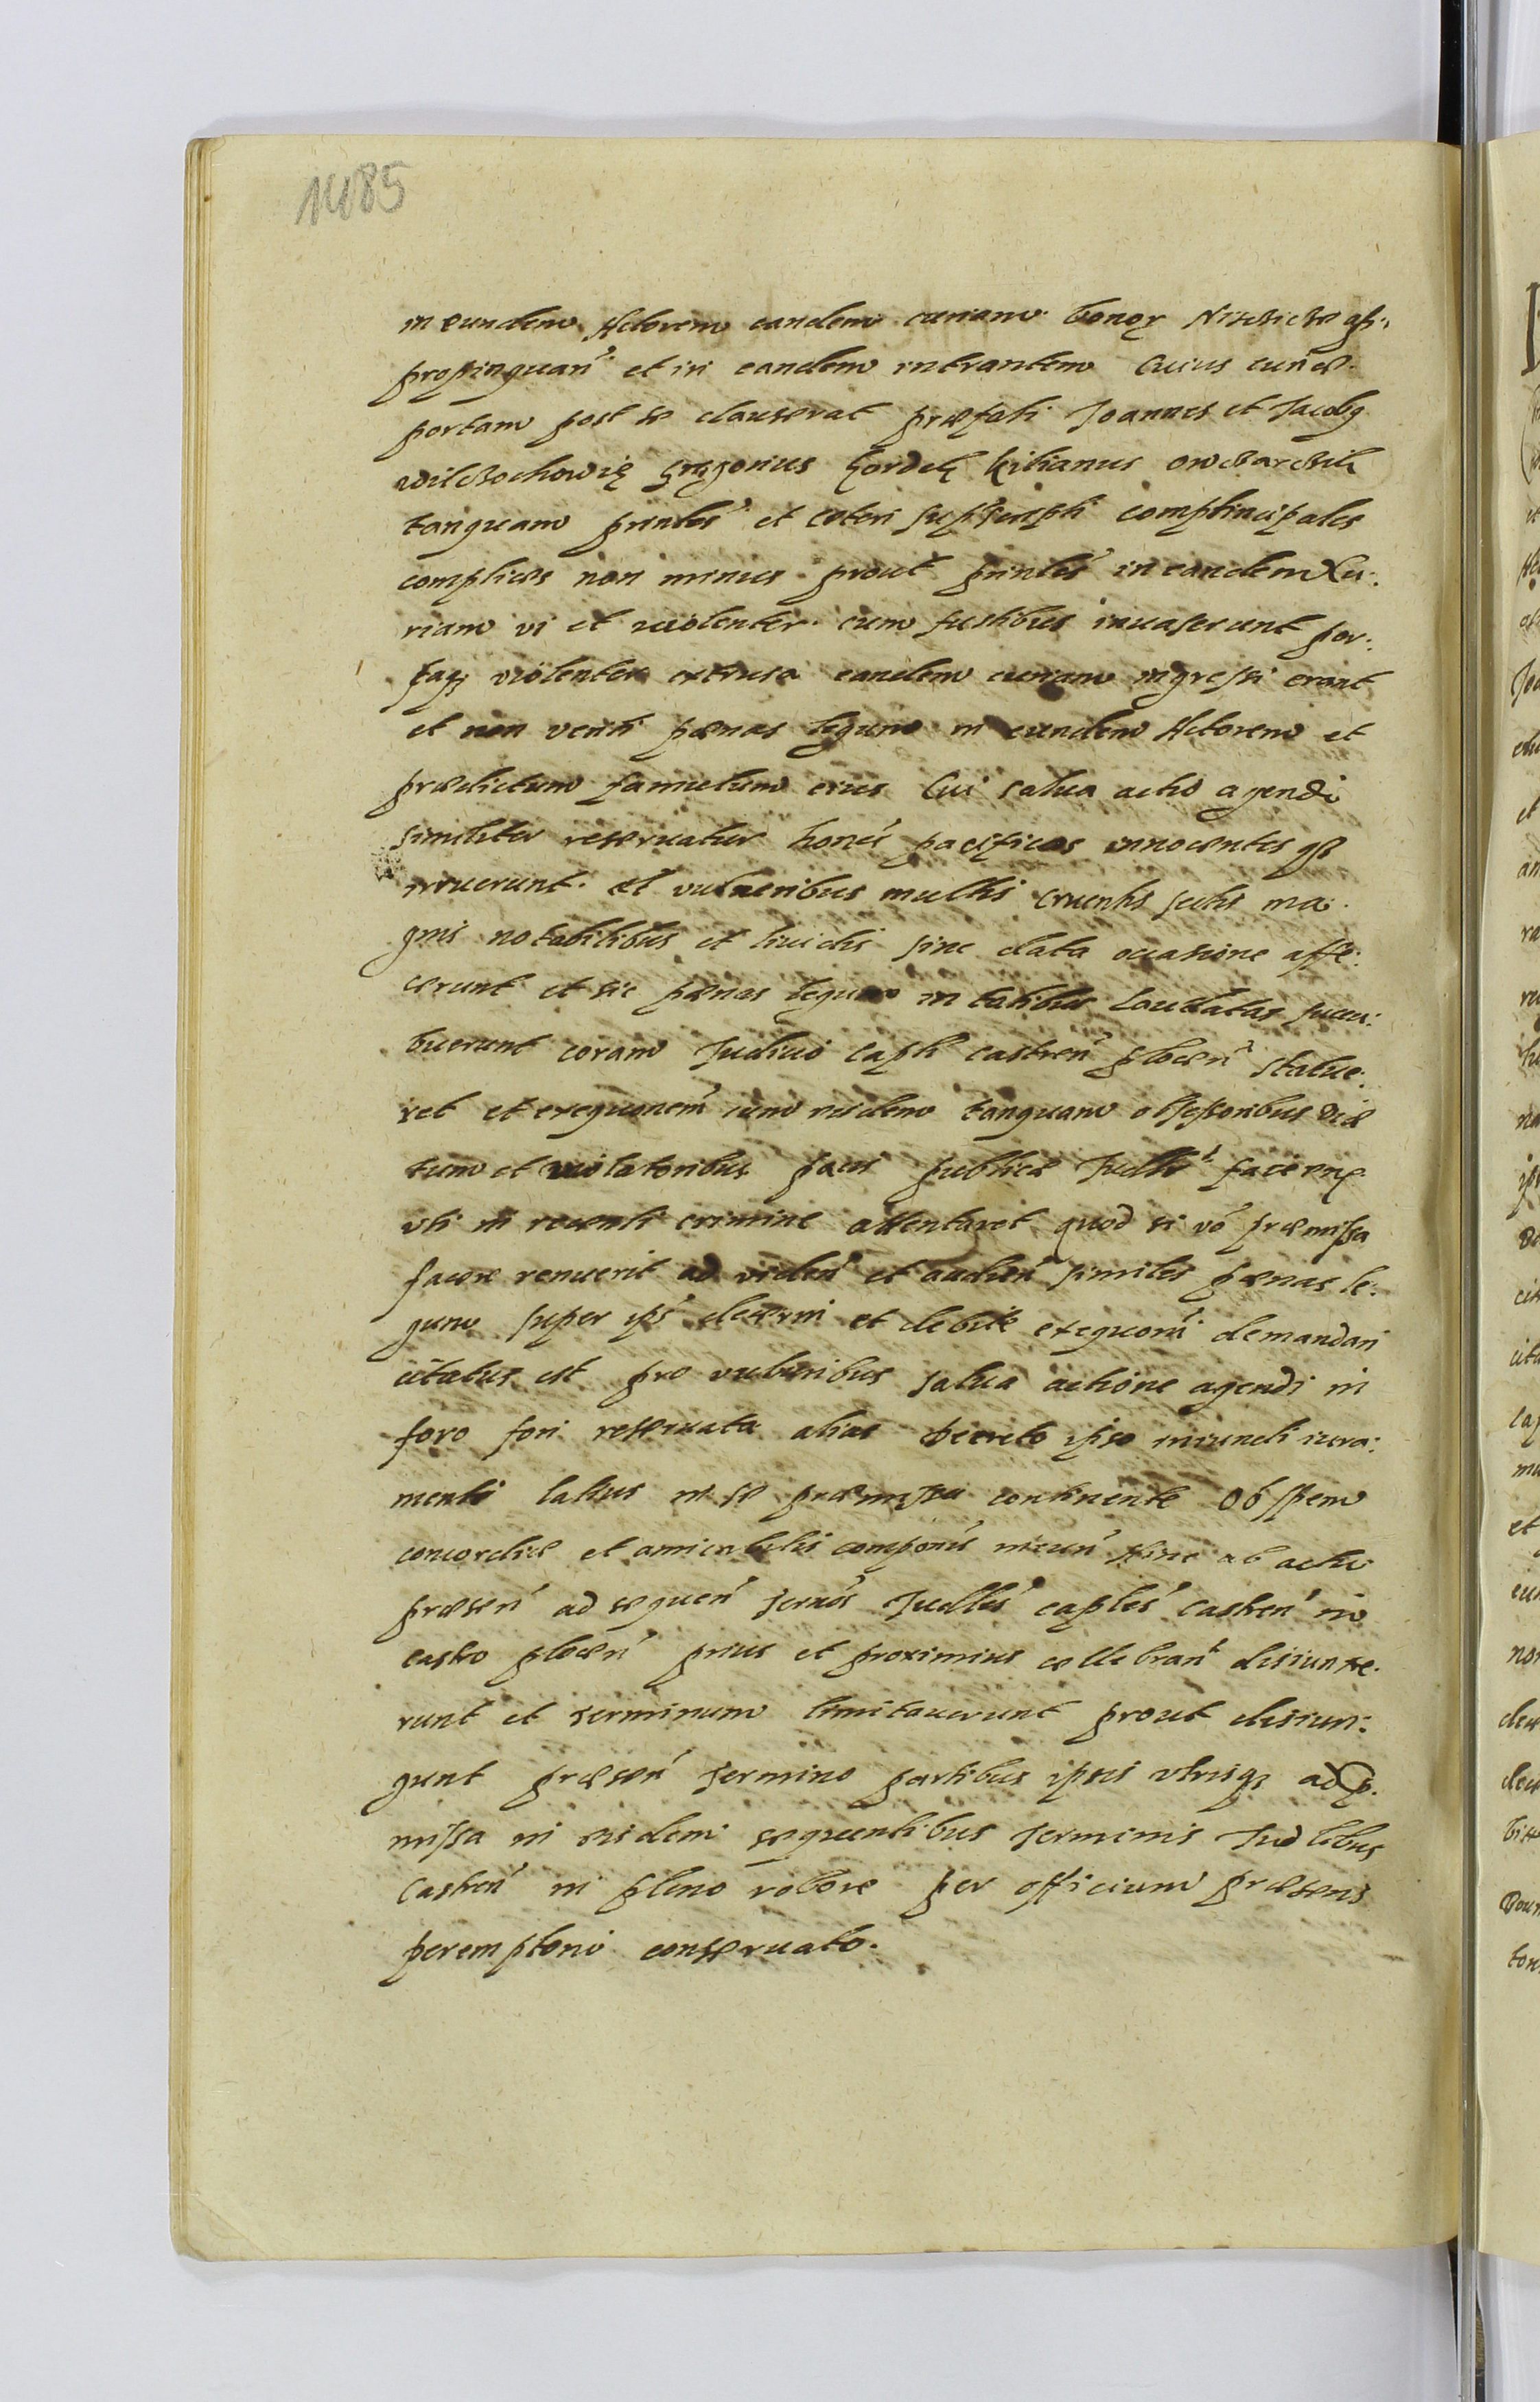 1485
in eundem Actorem eandem curiam bonor
propinquan et in eandem intrantem Cuius curiæ
portam post se clauserat præfati Joannes et Jacob9
Gregorius Kilianus
tanquam prinles et ceteri suprascripti comprincipales
complices non minus prout prinles in eandem Cu:
riam vi et violenter cum fustibus inuaserunt por:
taq3 violenter extrusa eandem curiam ingressi erant
et non veriti pænas legum in eundem Actorem et
prædictum famulum eius Cui salua actio agendi
similiter reseruatur pacificos innocentes q3
irruerunt et vulneribus multis cruentis ictis ma:
gnis notabilibus et liuidis sine data occasione affe:
cerunt et sic pænas legum in talibus laudatas succu:
buerunt coram Judicio Capti castren plocen statue:
ret et exequonem cum eisdem tanquam obsessoribus viæ
tum et violatoribus pacis publicæ facien
vti in recenti crimine attentaret quod si vo præmissa
facere renuerit ad viden et audien similes pænas le:
gum super ipso decerni et debite exequoni demandari
citatus est pro vulneribus salua actione agendi in
foro fori reseruata alias Decreto ipso iniuncti iura:
menti latius in se præmissa continente Ob spem
concordiæ et amicabilis componis ineun Hinc ab actu
præsen ad sequen termos Judles captles castren in
castro plocen prius et proximius cellebran disiunxe:
runt et terminum limitauerunt prout disiun:
gunt præsen termino partibus ipsis vtrisq3 ad p.
missa in eisdem sequentibus Terminis Judlibus
Castren in pleno robore per officium præsens
peremptorio conseruato.